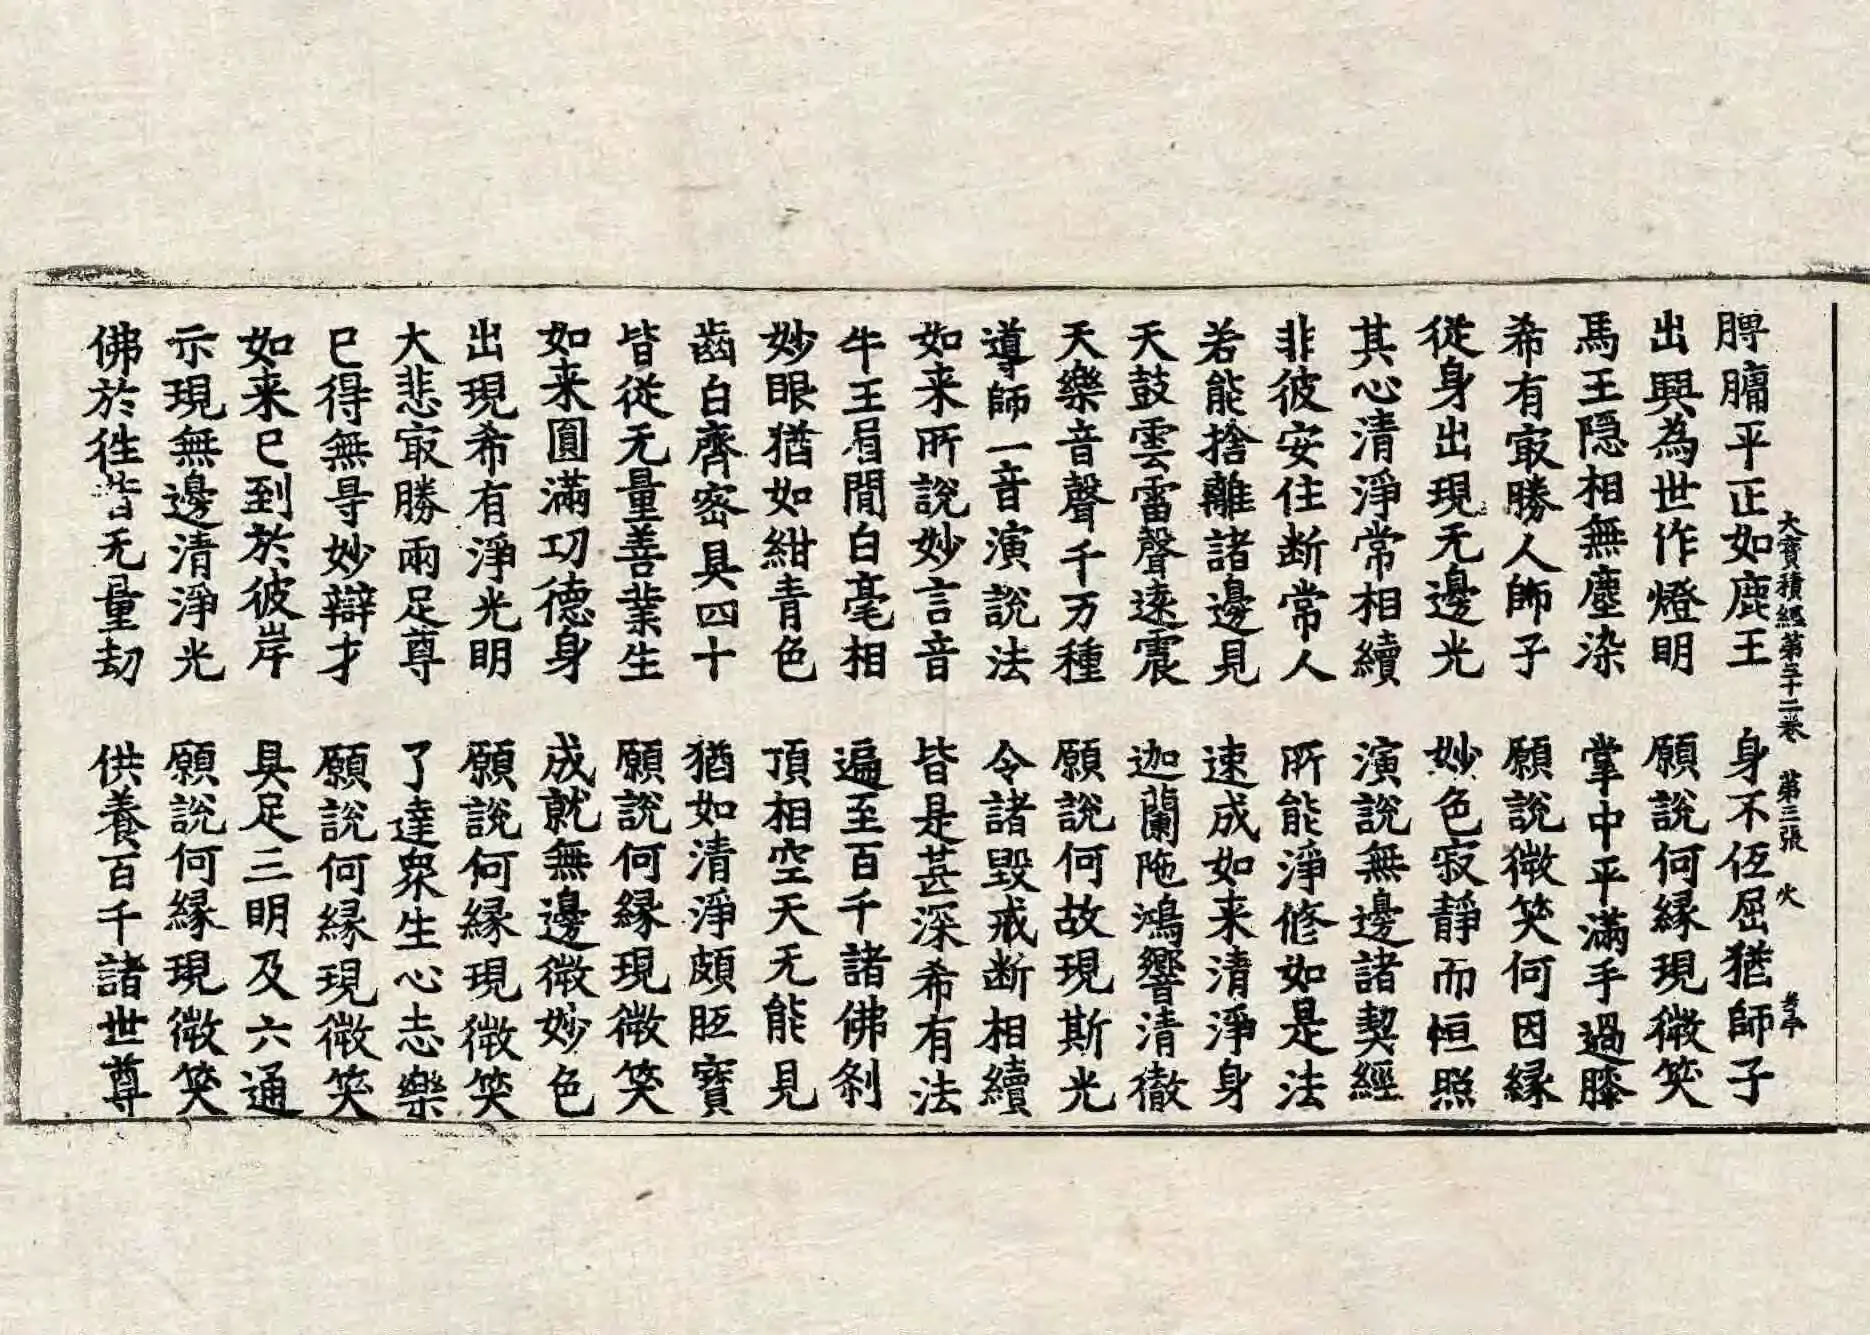 大寶積經第三十二卷 第三張 火
𨄔膊平正如鹿王 身不伛屈猶師子
出興為世作燈明 願說何緣現微笑
馬王隐相無塵染 掌中平滿手過膝
希有㝡勝人師子 願說微笑何因緣
從身出現无邊光 妙色寂靜而恒照
其心清淨常相續 演說無邊諸契經
非彼安住断常人 所能淨修如是法
若能捨離諸邊見 速成如来清淨身
天鼓雲雷聲遠震 迦蘭陁鴻響清徹
天樂音聲千万種 願說何故現斯光
導師一音演說法 令諸毀戒断相續
如来所說妙言音 皆是甚深希有法
牛王眉間白毫相 遍至百千諸佛刹
妙眼猶如紺青色 頂相空天无能見
齒白齊密具四十 猶如清淨頗胝寶
皆從无量善業生 願說何緣現微笑
如来圓滿功德身 成就無邊微妙色
出現希有淨光明 願說何緣現微笑
大悲㝡勝兩足尊 了達衆生心志樂
已得無㝵妙辯才 願說何緣現微笑
如来已到於彼岸 具足三明及六通
示現無邊清淨光 願說何緣現微笑
佛於徃昔无量劫 供養百千諸世尊